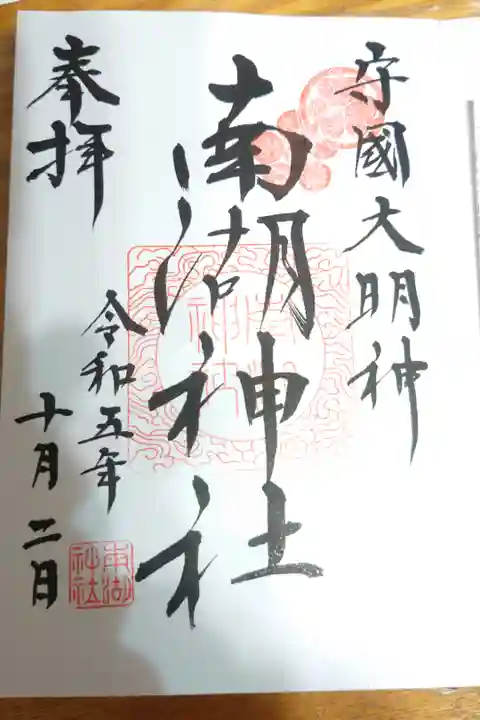 守國大明神
南湖神社
奉拝
令和五年
十月二日
南湖
神社
南湖
神社